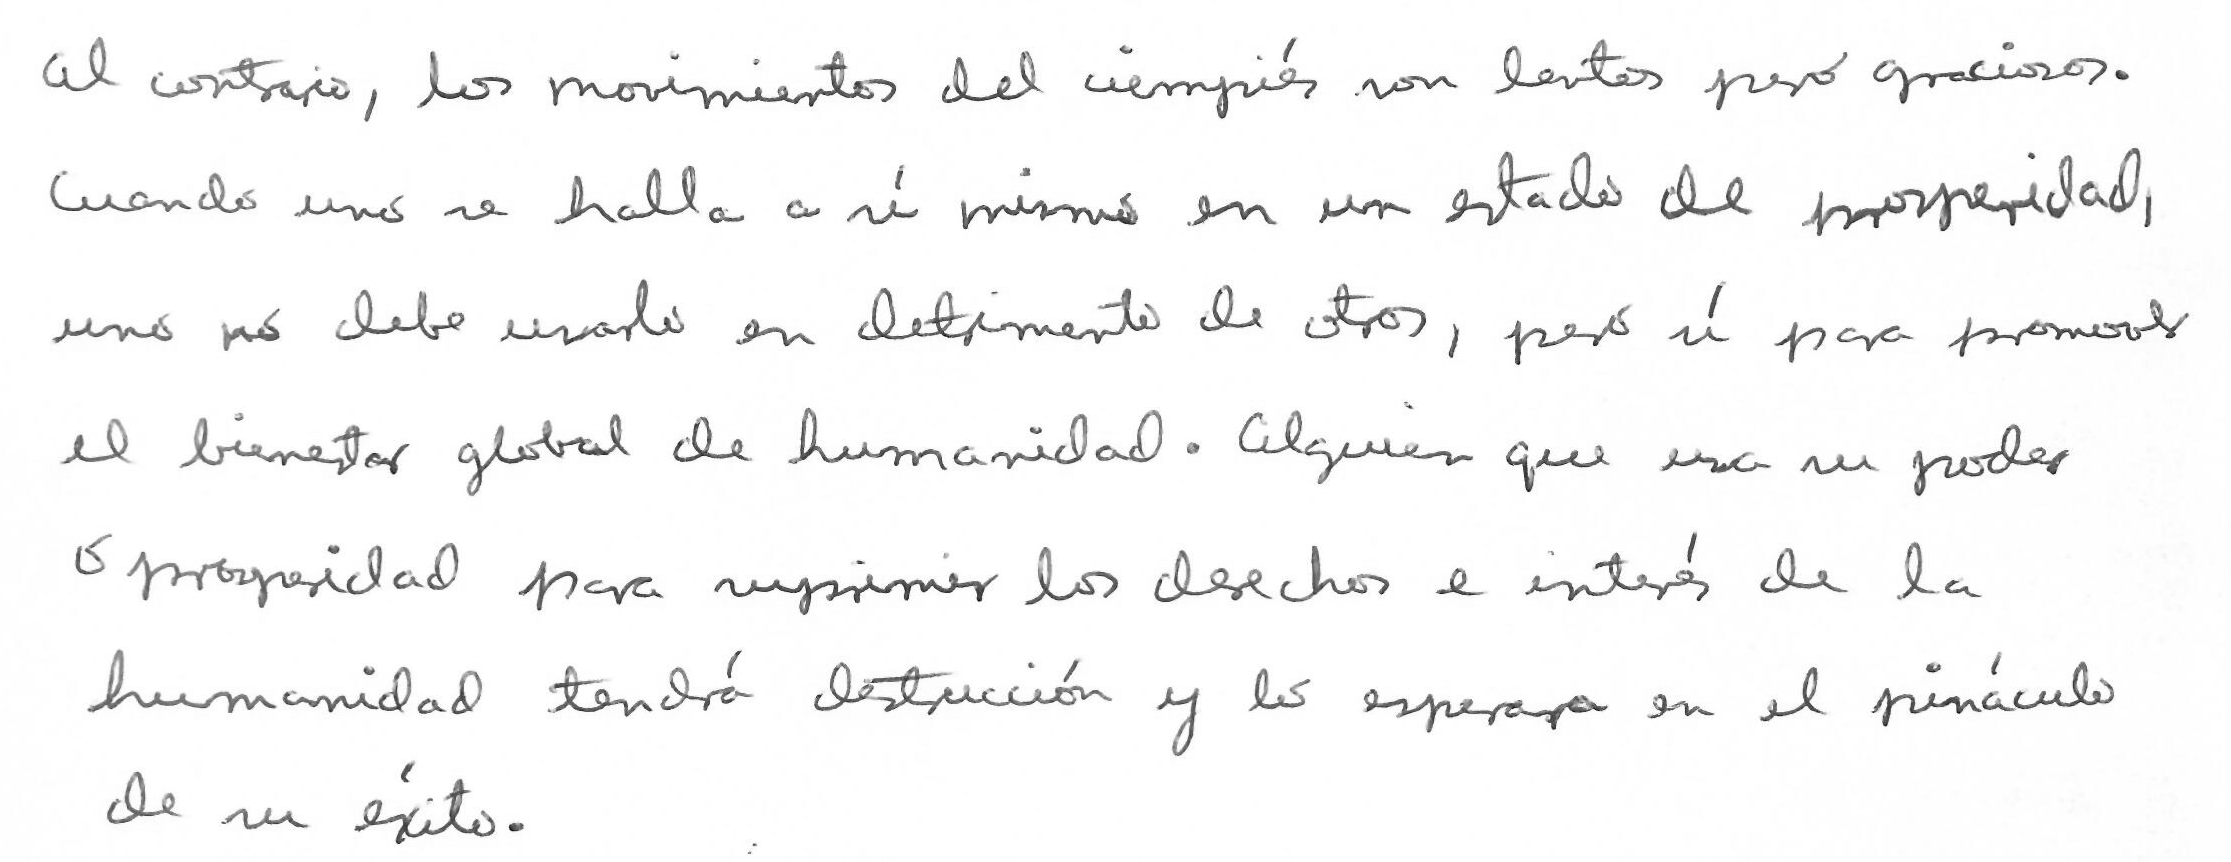 Al contrario, los movimientos del ciempiés son lentos pero graciosos.
Cuando uno se halla a sí mismo en un estado de prosperidad,
uno no debe usarlo en detrimento de otros, pero sí para promover
el bienestar global de humanidad. Alguien que usa su poder
o prosperidad para suprimir los desechos e interés de la
humanidad tendrá destrucción y lo esperara en el pináculo
de su éxito.